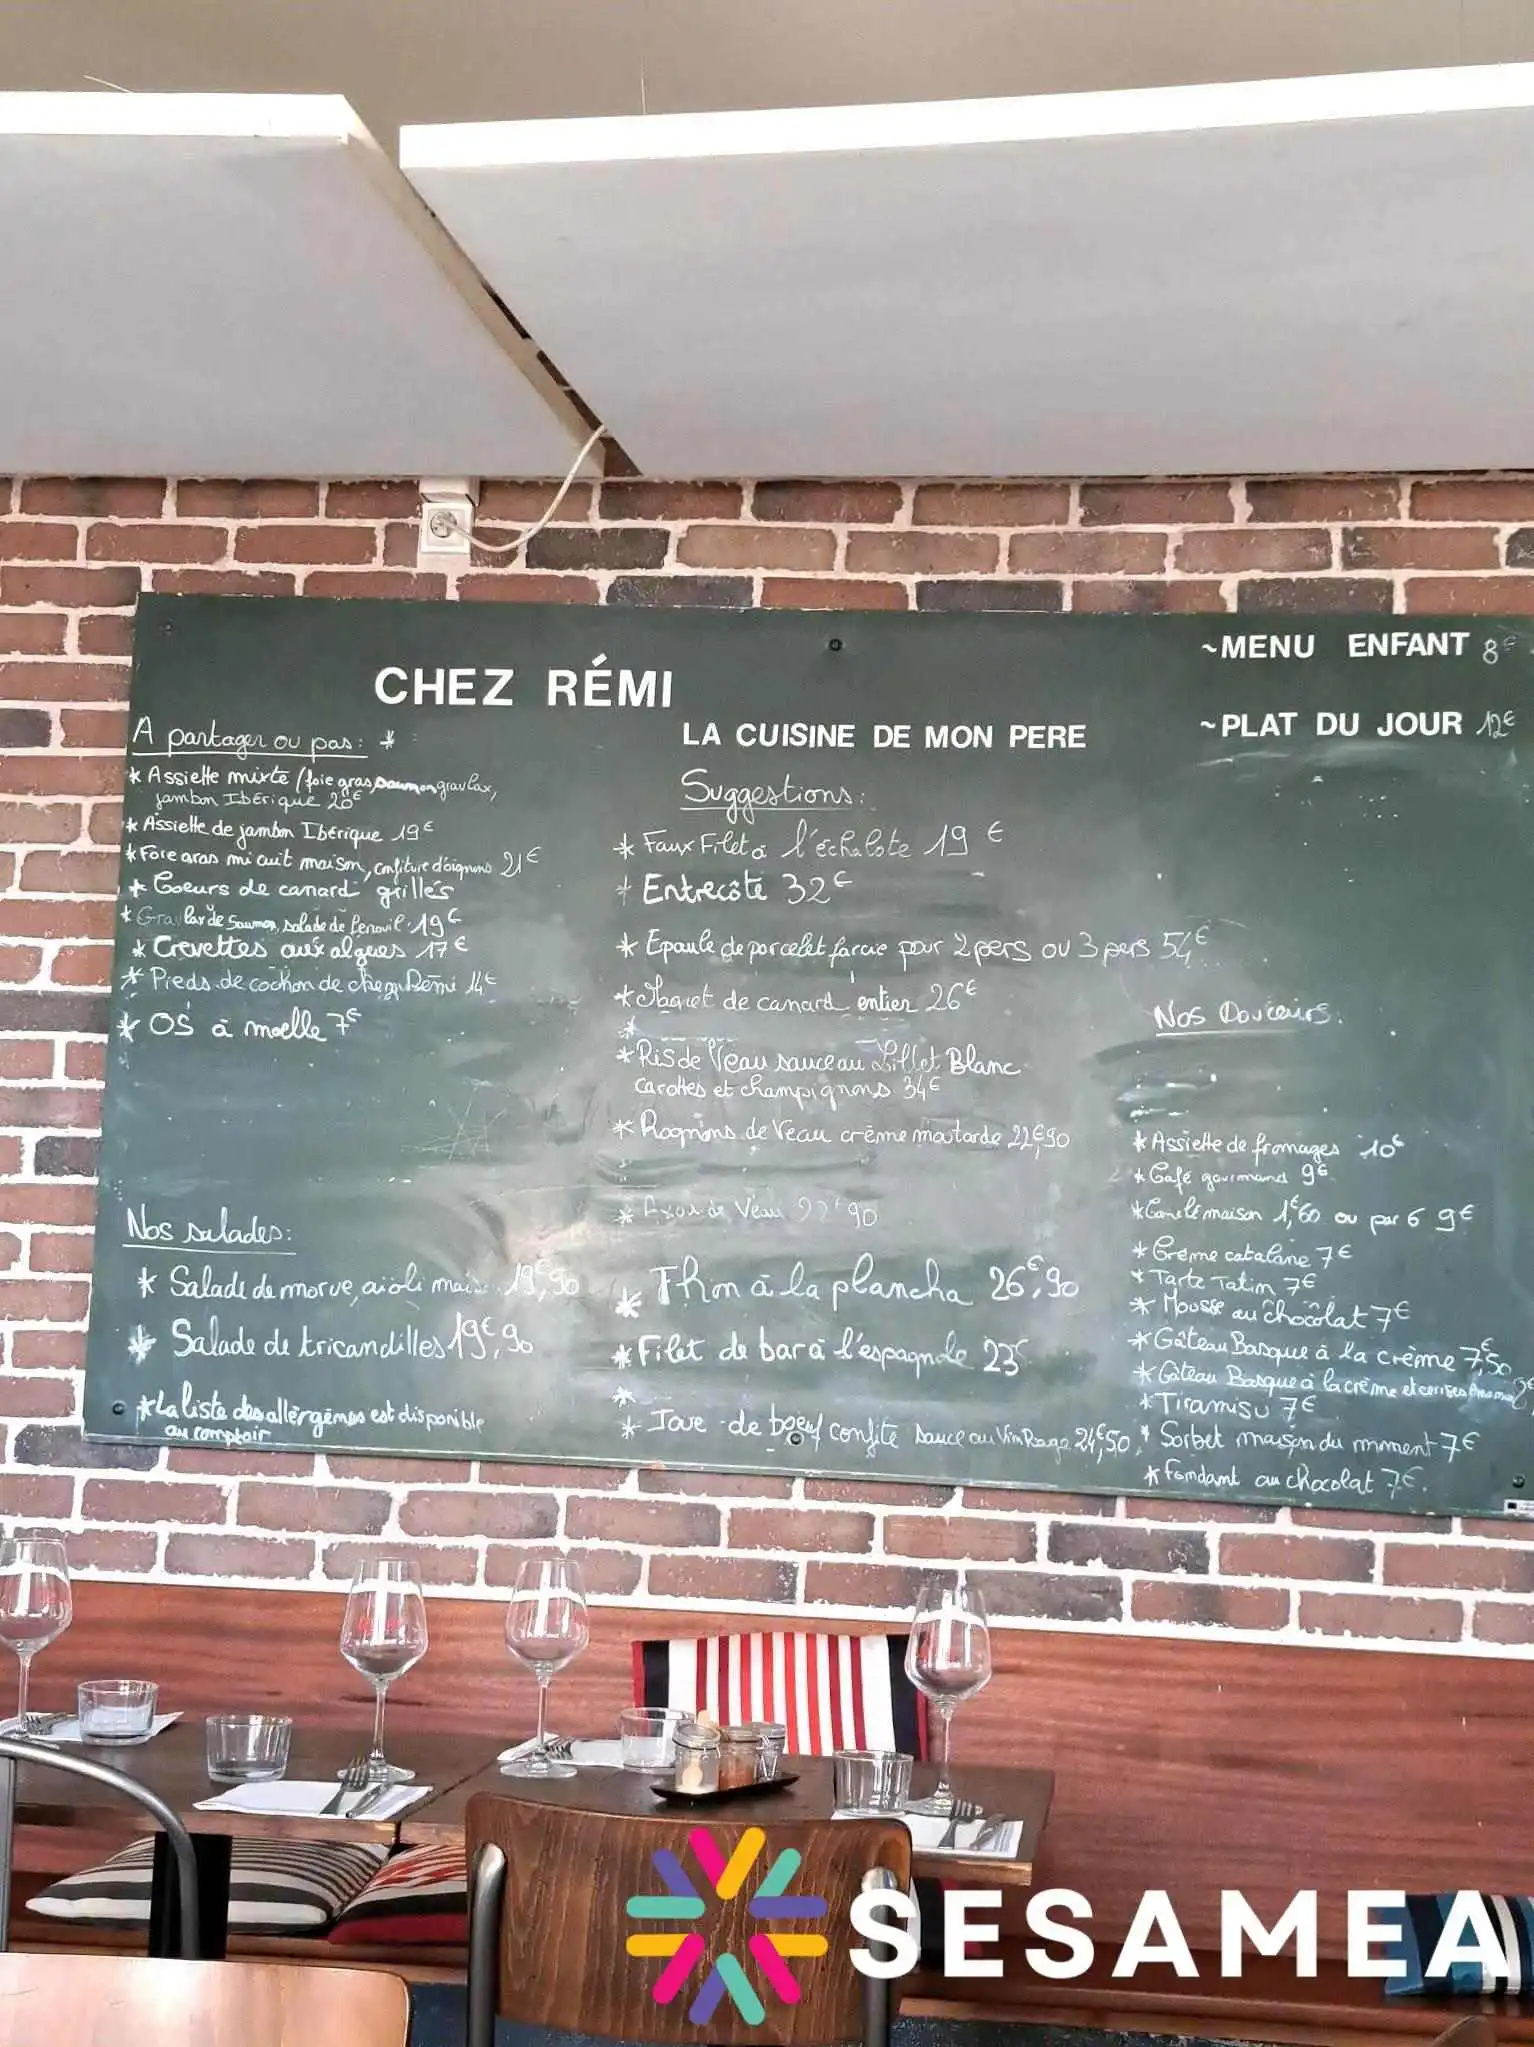 CHEZ RÉMI
LA CUISINE DE MON PERE
~MENU ENFANT 8€
~PLAT DU JOUR 12€
A partager ou pas: *
* Assiette mixte (foie gras, saumon gravlax,
jambon Ibérique 20€
* Assiette de jambon Ibérique 19€
* Foie gras mi cuit maison, confiture d'oignons 21€
* Coeurs de canard grillés
* Gravlax de saumon, salade de fenouil 19€
* Crevettes aux algues 17€
* Pieds de cochon de chez Rémi 14€
* OS à moelle 7€
Nos salades:
* Salade de morue, aïoli mais 19€,90
* Salade de tricandilles 19€,90
* La liste des allergènes est disponible
au comptoir
Suggestions:
* Faux Filet à l'échalote 19 €
* Entrecôte 32€
* Epaule de porcelet farcie pour 2 pers ou 3 pers 54€
* Magret de canard entier 26€
*
* Ris de Veau sauce au Lillet Blanc
carottes et champignons 34€
* Rognons de Veau crème moutarde 22€90
* Axoa de Veau 22€90
* Thon à la plancha 26€,90
* Filet de bar à l'espagnole 23€
*
* Joue de boeuf confite sauce au Vin Rouge 24€,50
Nos Douceurs:
* Assiette de fromages 10€
* Café gourmand 9€
* Canelé maison 1€,60 ou par 6 9€
* Crème catalane 7€
* Tarte Tatin 7€
* Mousse au chocolat 7€
* Gâteau Basque à la crème 7€,50
* Gâteau Basque à la crème et cerises
* Tiramisu 7€
* Sorbet maison du moment 7€
* Fondant au chocolat 7€.
SESAMEA